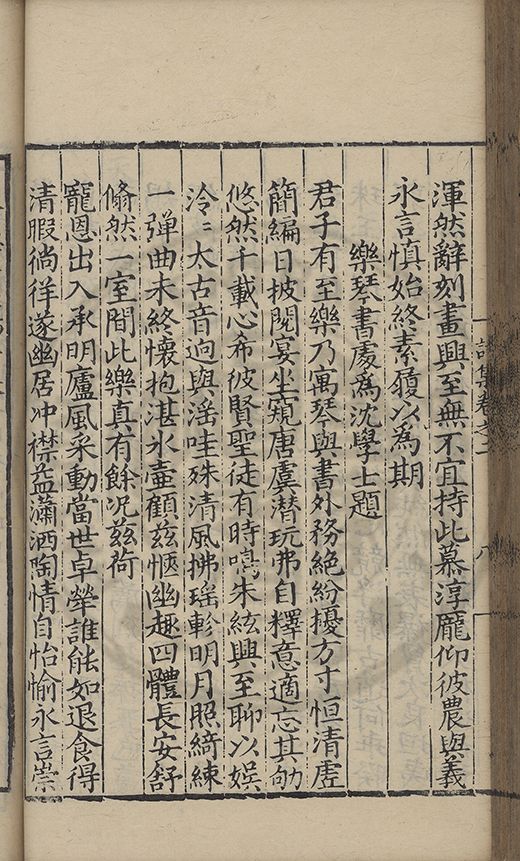 詩集卷之二
八
渾然辭刻畫興至無不宜持此慕淳龐仰彼農與義
永言慎始終素履以為期
樂琴書處為沈學士題
君子有至樂乃寓琴與書外務絶紛擾方寸恒清虛
簡編日披閱宴坐窺唐虞潜玩弗自釋意適忘其劬
悠然千載心希彼賢聖徒有時鳴朱絃興至聊以娱
泠泠大古音逈與滛哇殊清風拂瑶軫明月照綺練
一弹曲未終懷抱湛氷壷顧兹愜幽趣四體長安舒
翛然一室間此樂真有餘况兹荷
寵恩出入承明廬風采動當世卓犖誰能如退食得
清暇徜徉遂幽居冲襟益瀟洒陶情自怡愉永言崇